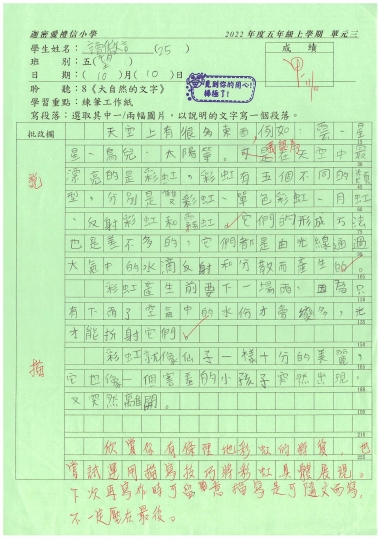 迦密愛禮信小學 2022年度五年級上學期 單元三
學生姓名： (25) 成績
班別：五( 望 )
日期：( 10 )月( 10 )日 見到你的用心！棒極了！
聆聽：8《大自然的文字》
學習重點：練筆工作紙
寫段落：選取其中一/兩幅圖片，以說明的文字寫一個段落。
批改欄
天空上有很多東西，例如：雲、星
星、鳥兒、太陽等。可是在天空中最
漂亮的是彩虹。彩虹有五個不同的類
型，分別是雙彩虹、單色彩虹、月虹
、反射彩虹和霧虹。它們的形成方法
也是差不多的，它們都是由光線通過
大氣中的水滴反射和分散而產生的。
彩虹產生前要下一場雨，因為只
有下雨了空氣中的水份才會變多，光
才能折射它們。
彩虹就像仙子一樣十分的美麗，
它也像一個害羞的小孩子突然出現，
又突然離開。
說
描
欣賞你有條理地彩虹的 ，也
嘗試運用描寫技巧將彩虹具體展現。
下次再寫作時可留意描寫是可隨文而寫，
不一定壓在最後。